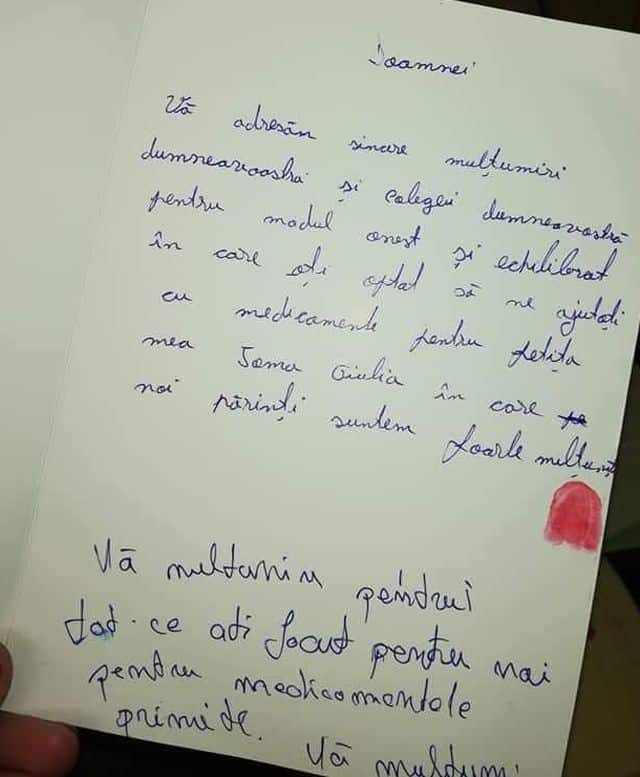 Doamnei
Vă adresăm sincere mulțumiri
dumneavoastră și colegei dumneavoastră
pentru modul onest și echilibrat
în care ați optat să ne ajutați
cu medicamente pentru fetița
mea Toma Giulia în care
noi părinți suntem foarte
Vă multumim pentrui
tot ce ati facut pentru noi
pentru medicamentele
primite. Vă multumi